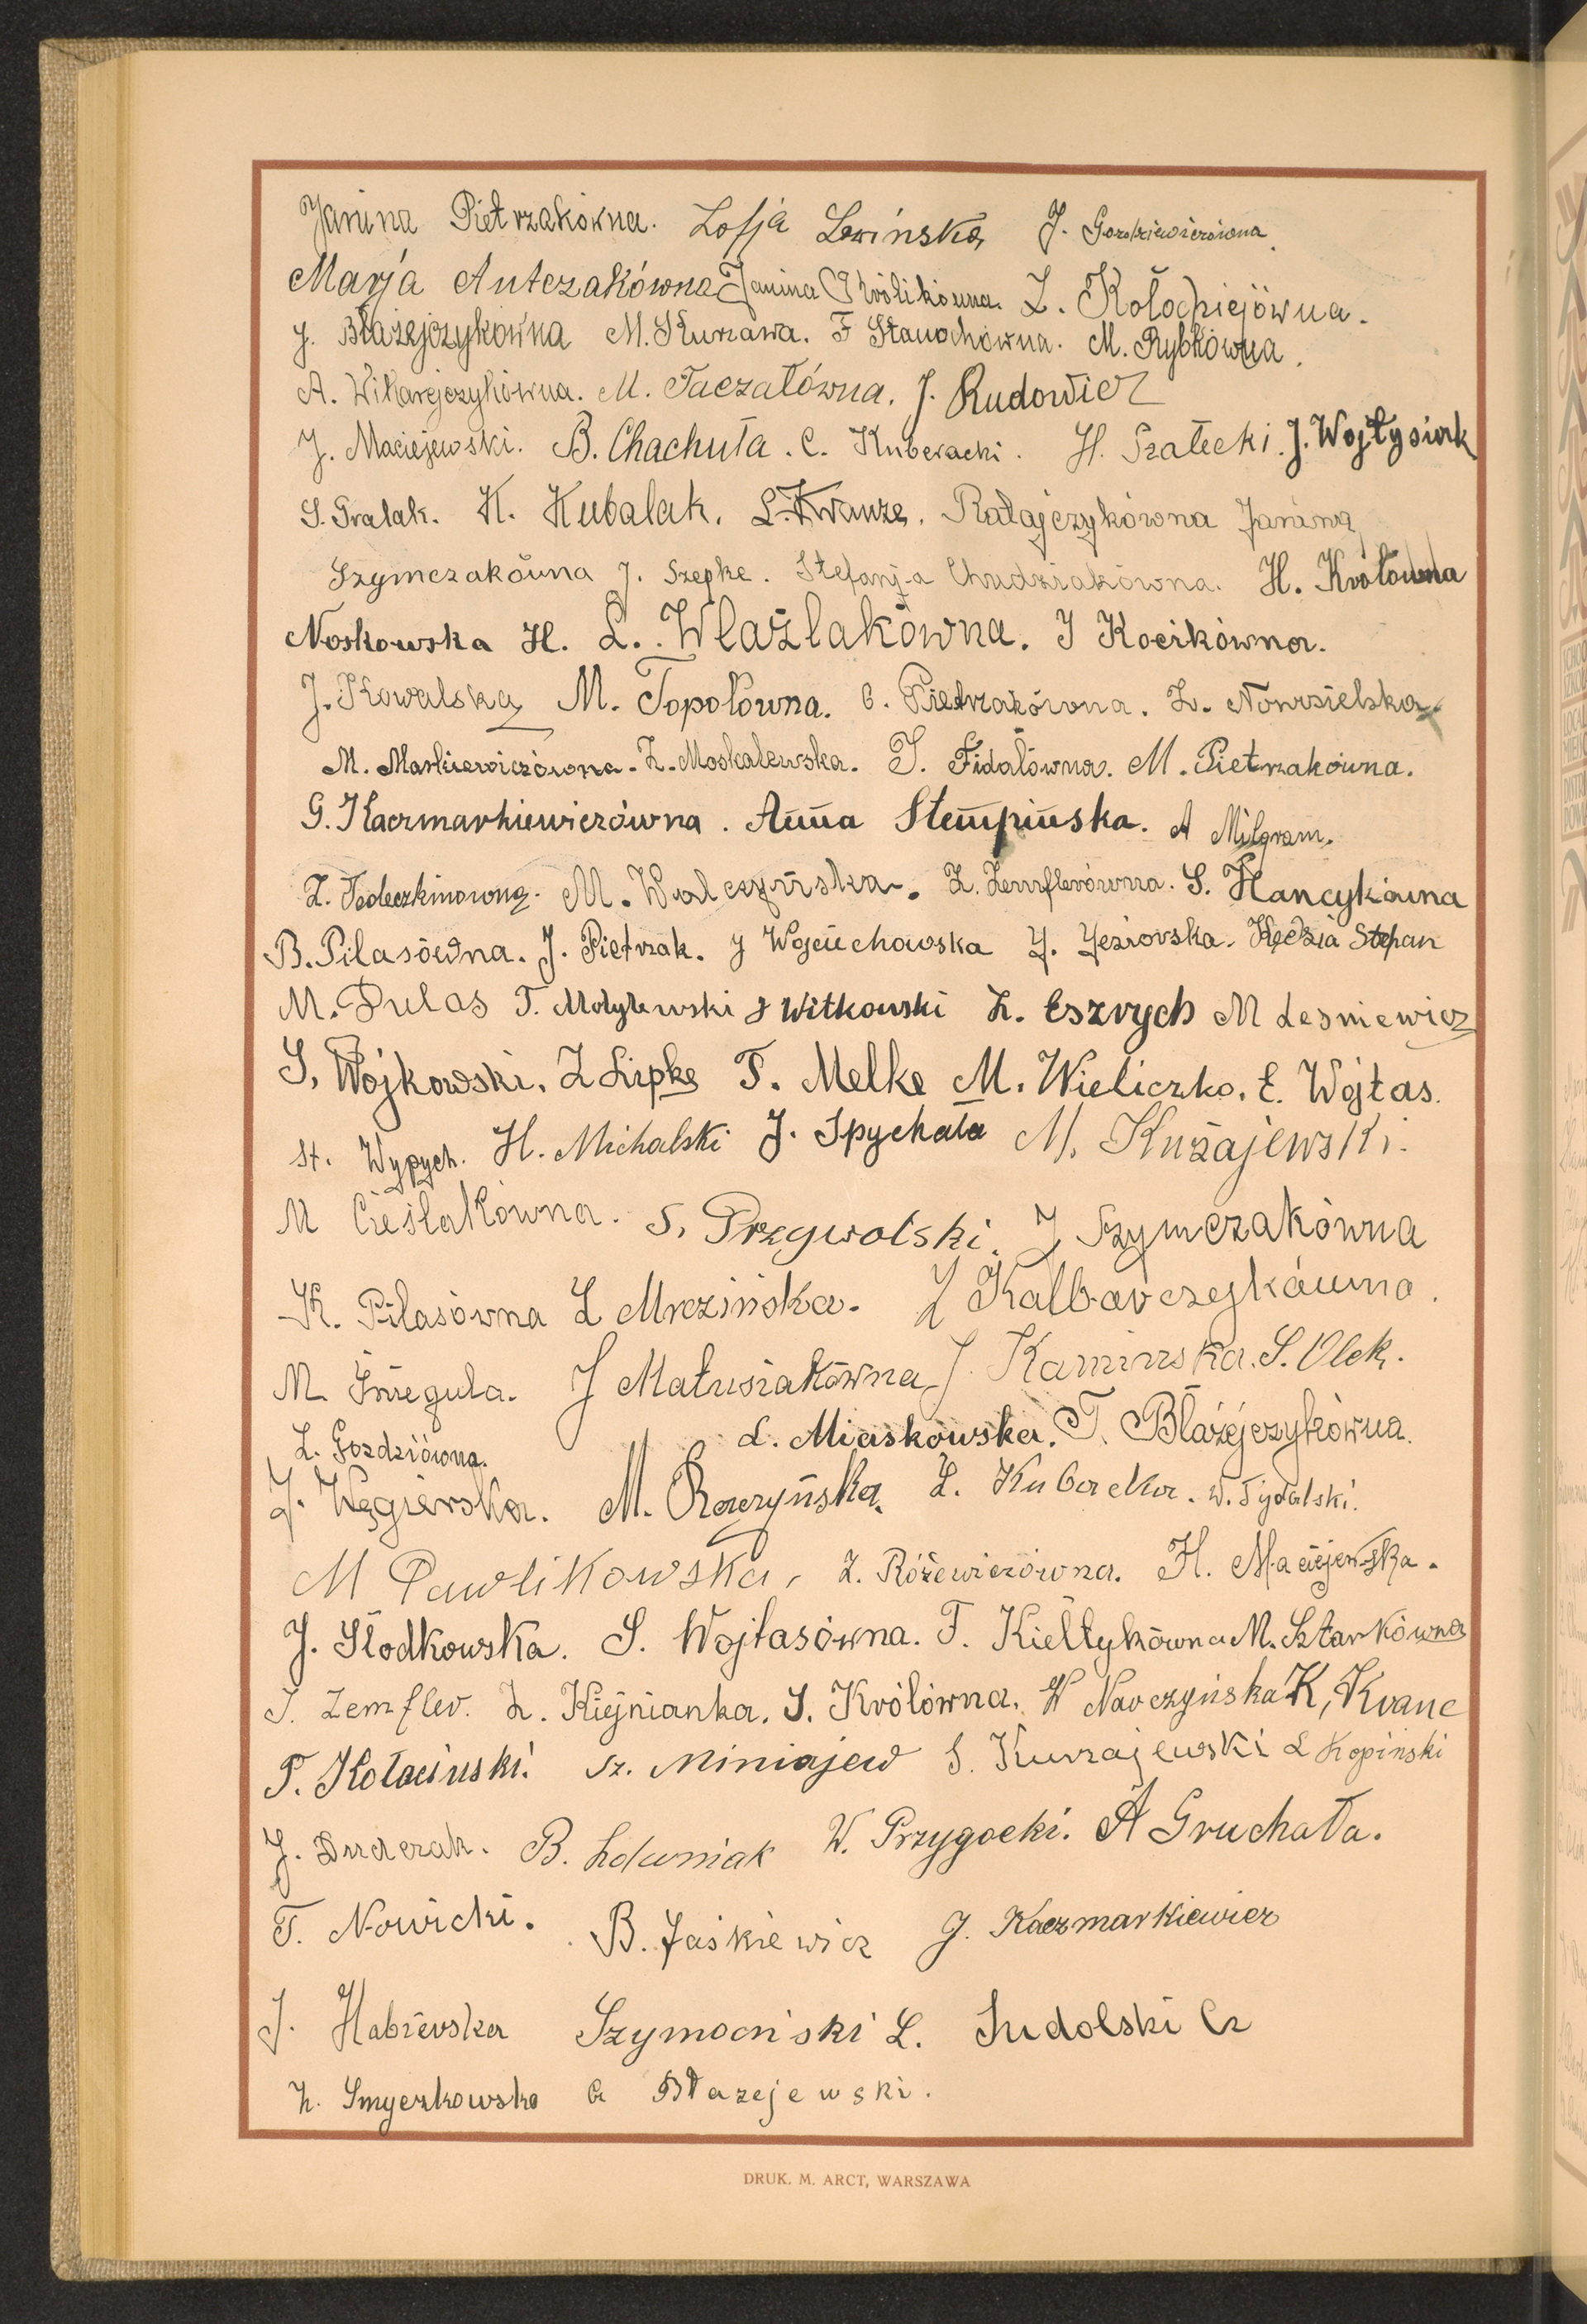 Janina Pietrzakówna. Zofja Lewińska J. Gozdziewiczówna.
Marja Antczakówna Janina Królikówna. Z. Kołodziejówna.
J. Błażejczykówna M. Kurzawa. F Stauchówna. M. Rybkówna.
A. Wikarejczykówna. M. Taczałówna. J. Rudowicz
J. Maciejewski. B. Chachuła. C. Kuberacki. H. Szałecki. J. Wojtysiak
S. Gralak. K. Kubalak. L. Krauze. Ratajczykówna Janina
Szymczakówna J. Szepke. Stefanja Chudziakówna. H. Królówna
Noskowska H. L. Wlaźlakówna. I Kocikówna.
J. Kowalska M. Topolówna. C. Pietrzakówna. Z. Nowosielska
M. Markiewiczówna. Z. Moskalewska. J. Fidalówna. M. Pietrzakówna.
G. Kaczmarkiewiczówna. Anna Stempińska. A Milgram.
M. Walczyńska. Z. Zemflerówna. S. Hancykówna
B. Pilasówna. J. Pietrzak. J Wojciechowska J. Jeziorska. Kędzia Stefan
M. Pulas T. Motylewski J Witkowski Z. Eszrych M Lesniewicz
S. Wójkowski. Z Lipke F. Melke M. Wieliczko. E. Wojtas.
St. Wypych. H. Michalski J. Spychała M. Kużajewski.
M Cieślakówna. S. Przywolski. J Szymczakówna
K. Pilasówna Z Mrozińska. Z Kalbarczykówna.
M Śniegula. J Matusiakówna J. Kamińska. S. Olek.
Z. Gozdziówna. L. Miaskowska. T. Błażejczykówna.
J. Węgierska. M. Raczyńska. Z. Kubacka. W. Tydalski.
M Pawlikowska, Z. Różewiczówna. H. Maciejewska.
J. Słodkowska. S. Wojtasówna. F. Kiełtykówna M. Sztarkówna
J. Zemfler. Z. Kiejnianka. S. Królówna. W Narczyńska K, Kranc
T. Kołaciński. Sz. Miniajew S. Kurzajewski L Kopiński
J. Duderzak. B. Zduniak W. Przygocki. A Gruchała.
T. Nowicki. B. Jaśkiewicz J. Kaczmarkiewicz
J. Habierska Szymański L. Sudolski Cz
Z. Smyczkowska Cz Błazejewski.
DRUK. M. ARCT, WARSZAWA